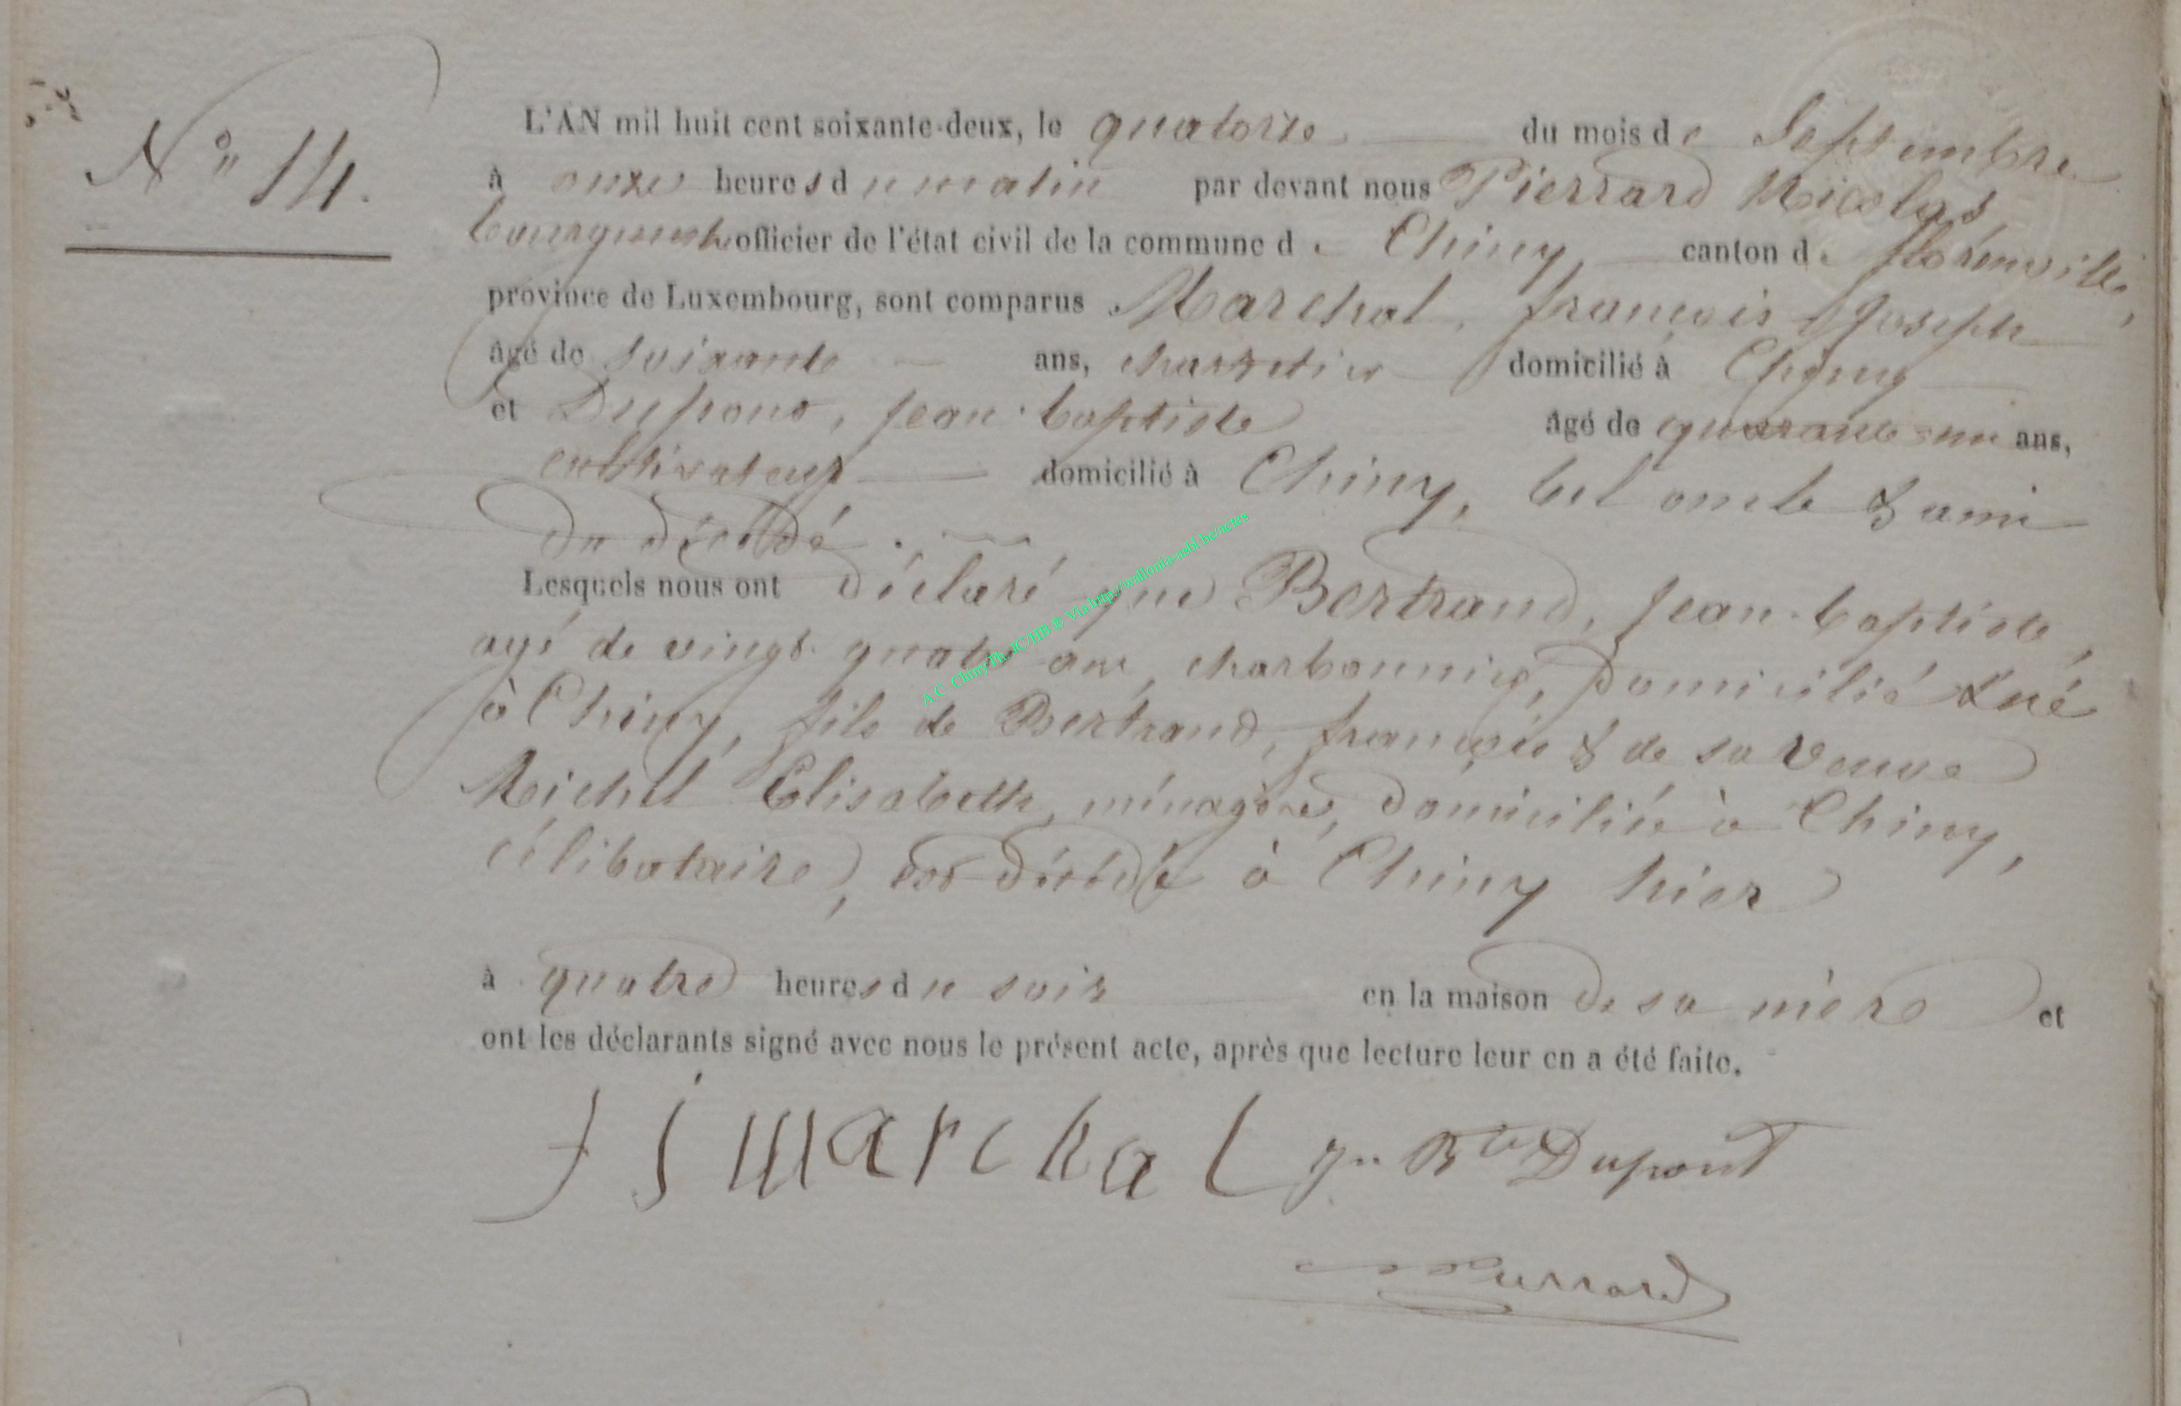 N° 14.
L'AN mil huit cent soixante-deux, le quatorze du mois de Septembre
à onze heures du matin par devant nous Pierrard Nicolas
bourgmestre officier de l'état civil de la commune de Chiny canton de florenville,
province de Luxembourg, sont comparus Marchal, françois Joseph
âgé de soixante ans, charretier domicilié à Chiny
et Dupont, jean-baptiste âgé de quarante-un ans,
cultivateur domicilié à Chiny, bel oncle & ami
du décédé.
Lesquels nous ont déclaré que Bertrand, jean-baptiste,
agé de vingt-quatre ans, charbonnier, domicilié & né
à Chiny, fils de Bertrand, françois & de sa veuve
Michel Elisabeth, ménagère, domiciliée à Chiny,
célibataire, est décédé à Chiny hier
à quatre heures du soir en la maison de sa mère et
ont les déclarants signé avec nous le présent acte, après que lecture leur en a été faite.
f j marchal jn Bte Dupont
Pierrard